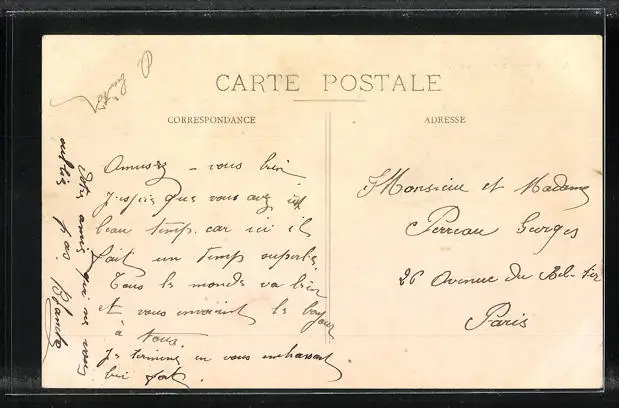 CARTE POSTALE
CORRESPONDANCE
ADRESSE
Amusez - vous bien
J'espère que vous avez
beau temps. car ici il
fait un temps superbe.
Tous le monde va bien
et vous envoient le bonjour
à tous.
Je termine en vous embrassant
bien fort.
Votre amie qui ne vous
oublie pas. Blanche
Monsieur et Madame
Perreau Georges
26 Avenue du Bel-Air
Paris